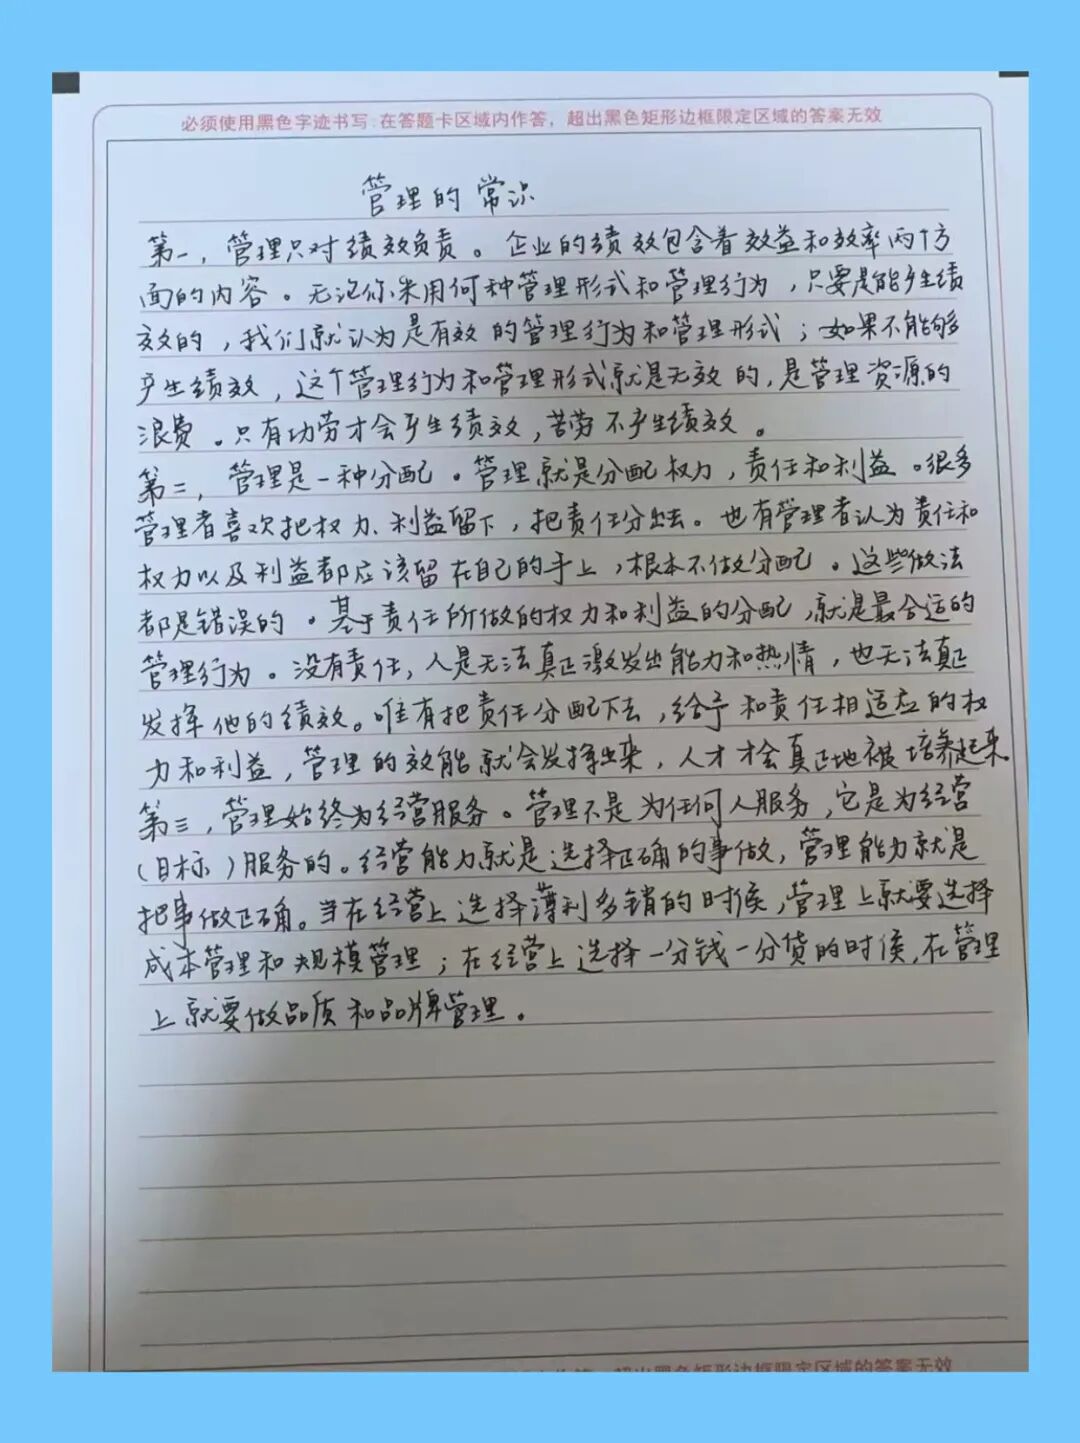 必须使用黑色字迹书写,在答题卡区域内作答，超出黑色矩形边框限定区域的答案无效
管理的常识
第一，管理只对绩效负责。企业的绩效包含着效益和效率两个方
面的内容。无论你采用何种管理形式和管理行为，只要是能产生绩
效的，我们就认为是有效的管理行为和管理形式；如果不能够
产生绩效，这个管理行为和管理形式就是无效的，是管理资源的
浪费。只有功劳才会产生绩效，苦劳不产生绩效。
第二，管理是一种分配。管理就是分配权力，责任和利益。很多
管理者喜欢把权力、利益留下，把责任分出去。也有管理者认为责任和
权力以及利益都应该留在自己的手上，根本不做分配。这些做法
都是错误的。基于责任所做的权力和利益的分配，就是最合适的
管理行为。没有责任，人是无法真正激发出能力和热情，也无法真正
发挥他的绩效。唯有把责任分配下去，给予和责任相适应的权
力和利益，管理的效能就会发挥出来，人才才会真正地被培养起来
第三，管理始终为经营服务。管理不是为任何人服务，它是为经营
（目标）服务的。经营能力就是选择正确的事做，管理能力就是
把事做正确。当在经营上选择薄利多销的时候，管理上就要选择
成本管理和规模管理；在经营上选择一分钱一分货的时候，在管理
上就要做品质和品牌管理。
超出黑色矩形边框限定区域的答案无效